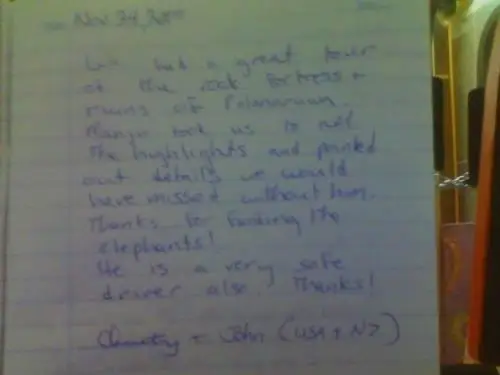 Nov
We had a great tour
of the rock fortress +
ruins of
took us to all
the highlights and pointed
out details we would
have missed without him.
Thanks for finding the
elephants!
He is a very safe
driver also. Thanks!
+ John (USA + NZ)